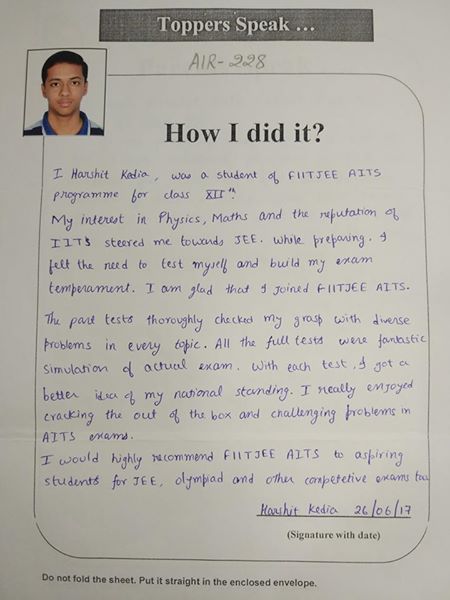 Toppers Speak ...
AIR- 228
How I did it?
I Harshit Kedia, was a student of FIITJEE AITS
programme for class XIIth.
My interest in Physics, Maths and the reputation of
IITs steered me towards JEE. While preparing. I
felt the need to test myself and build my exam
temperament. I am glad that I joined FIITJEE AITS.
The part tests thoroughly checked my grasp with diverse
problems in every topic. All the full tests were fantastic
simulation of actual exam. With each test, I got a
better idea of my national standing. I really enjoyed
cracking the out of the box and challenging problems in
AITS exams.
I would highly recommend FIITJEE AITS to aspiring
students for JEE, olympiad and other competetive exams too.
Harshit Kedia 26/06/17
(Signature with date)
Do not fold the sheet. Put it straight in the enclosed envelope.